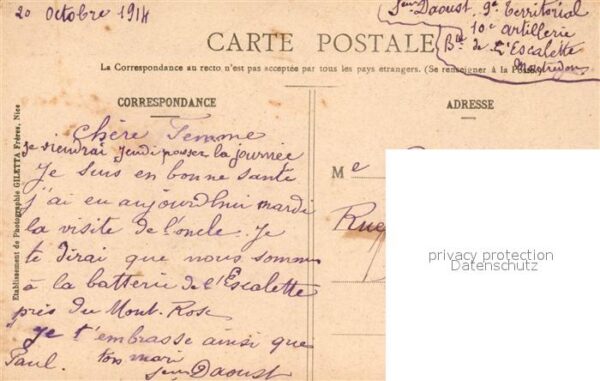 20 Octobre 1914
Daoust, 9e Territorial
10e Artillerie
Bie de L'Escalette
Montredon
CARTE POSTALE
La Correspondance au recto n'est pas acceptée par tous les pays étrangers. (Se renseigner à la Poste)
CORRESPONDANCE
Chère Femme
je viendrai jeudi passer la journée
Je suis en bonne santé
j'ai eu aujourd'hui mardi
la visite de l'oncle. Je
te dirai que nous sommes
à la batterie de l'Escalette
près du Mont-Rose
je t'embrasse ainsi que
Paul. ton mari
Daoust
ADRESSE
Me
Rue
Etablissement de Photographie GILETTA Frères, Nice
privacy protection
Datenschutz